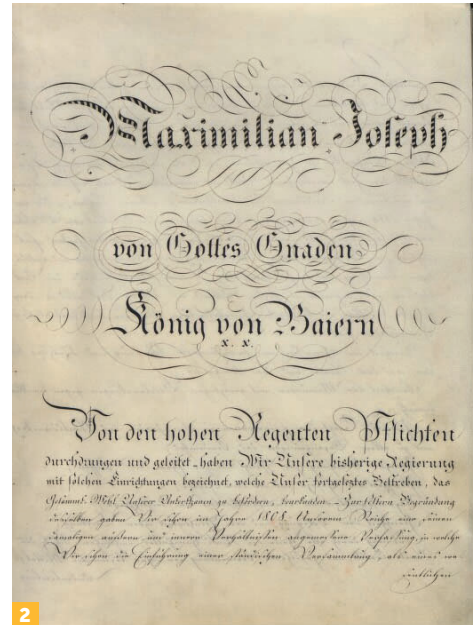 Maximilian Joseph
von Gottes Gnaden
König von Baiern
x. x.
Von den hohen Regenten Pflichten
durchdrungen und geleitet, haben Wir Unsere bisherige Regierung
mit solchen Einrichtungen bezeichnet, welche Unser fortgesetztes Bestreben, das
Gesammt-Wohl Unserer Unterthanen zu befördern, beurkunden. – Zur festern Begründung
desselben gaben Wir schon im Jahre 1808 Unserem Reiche eine seinen
damaligen äußern und innern Verhältnißen angemessene Verfassung, in welche
Wir schon die Einführung einer ständischen Versammlung, als eines we
sentlichen
2